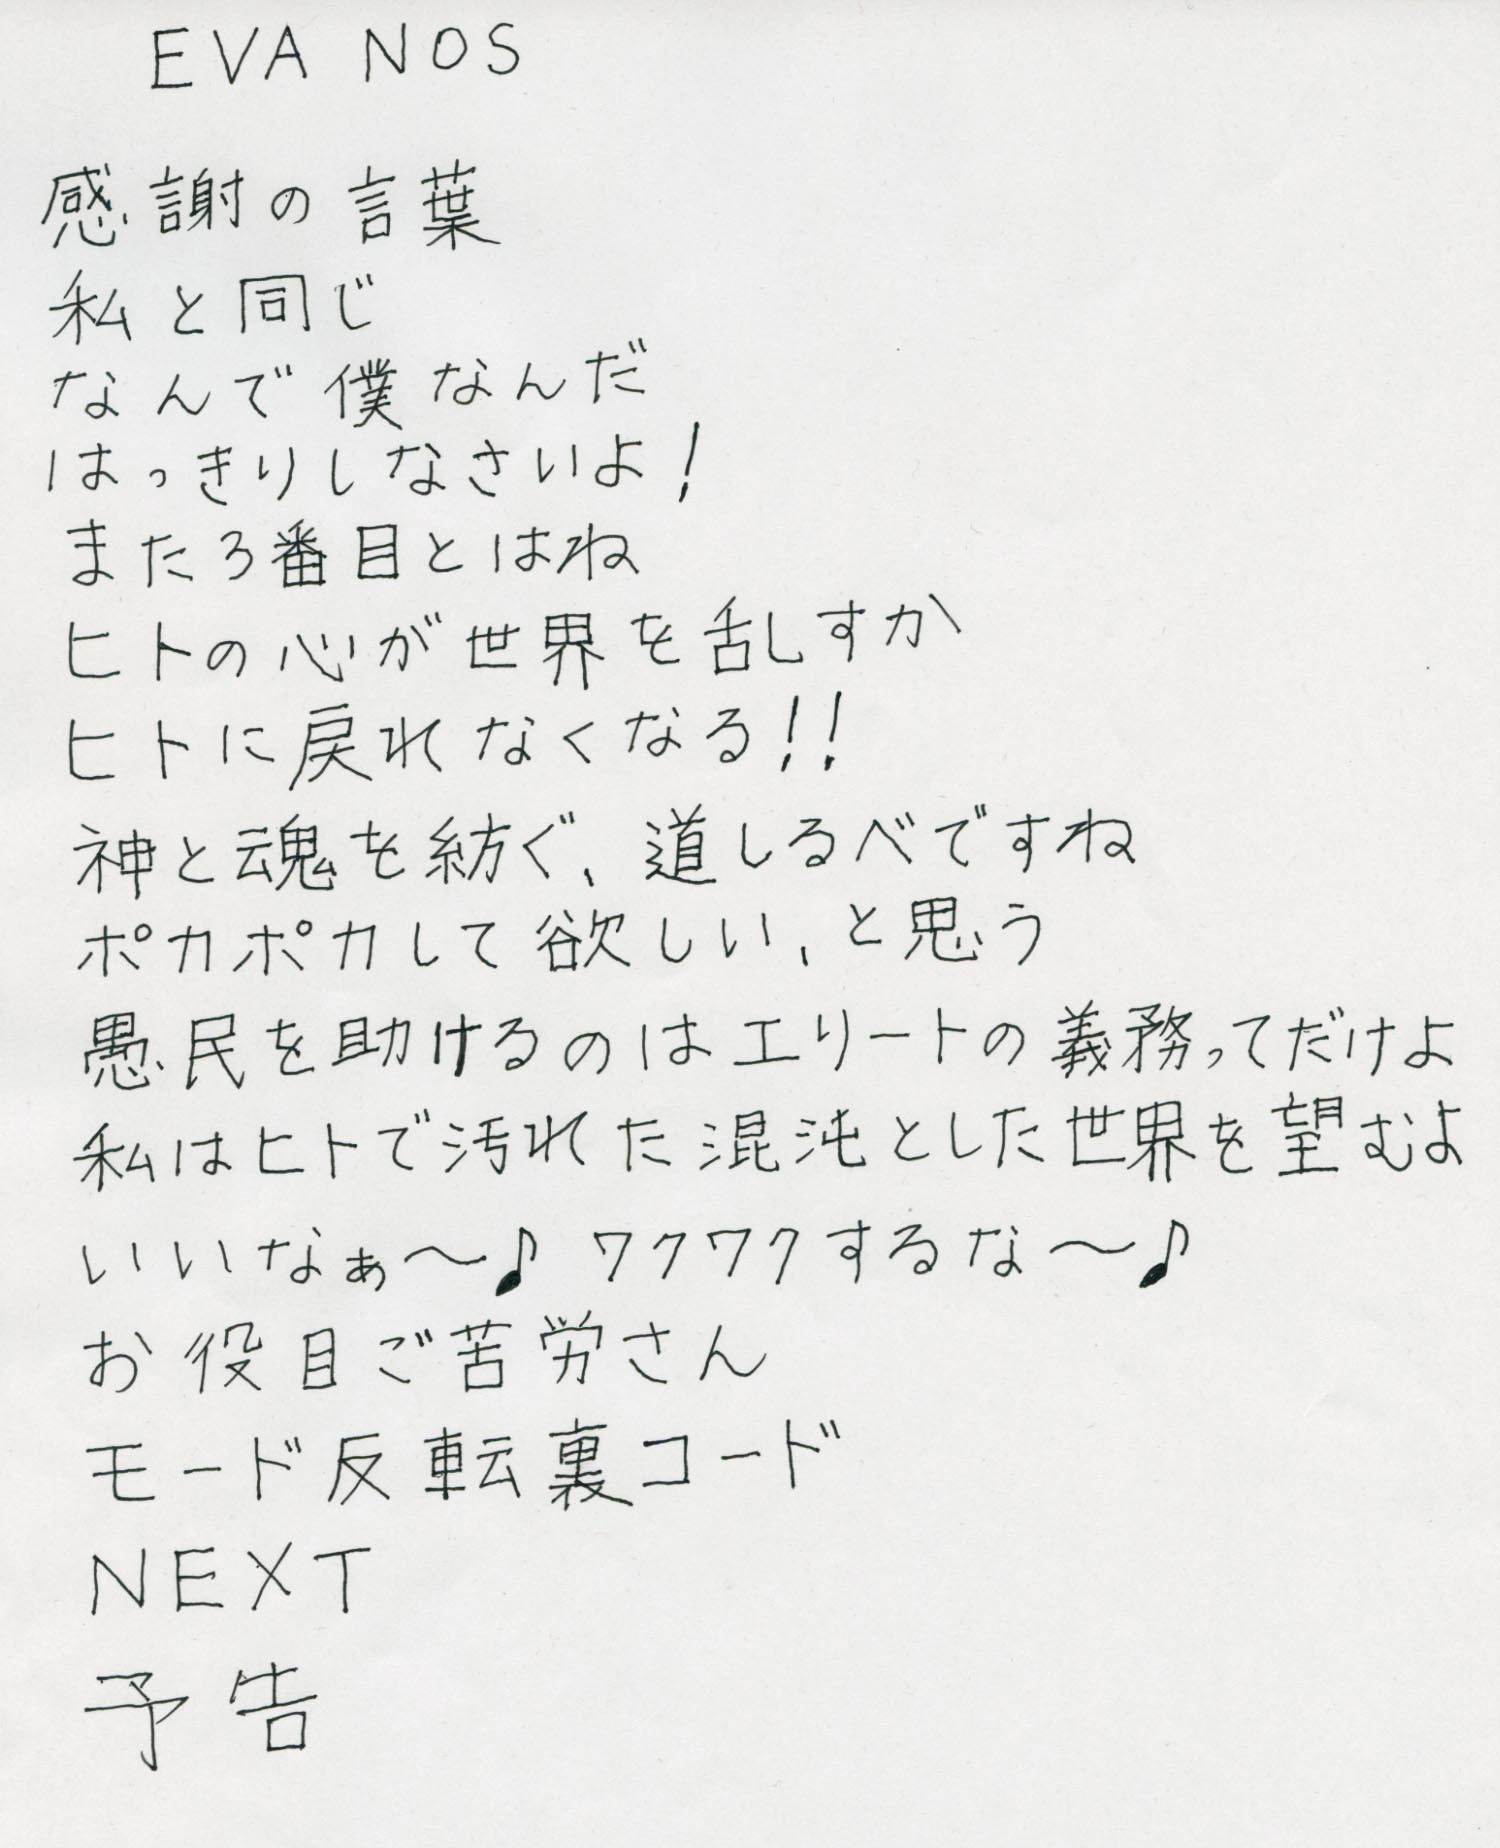 EVA NOS
感謝の言葉
私と同じ
なんで僕なんだ
はっきりしなさいよ!
また3番目とはね
ヒトの心が世界を乱すか
ヒトに戻れなくなる!!
神と魂を紡ぐ、道しるべですね
ポカポカして欲しい、と思う
愚民を助けるのはエリートの義務ってだけよ
私はヒトで汚れた混沌とした世界を望むよ
いいなぁ〜♪ ワクワクするな〜♪
お役目ご苦労さん
モード反転裏コード
NEXT
予告